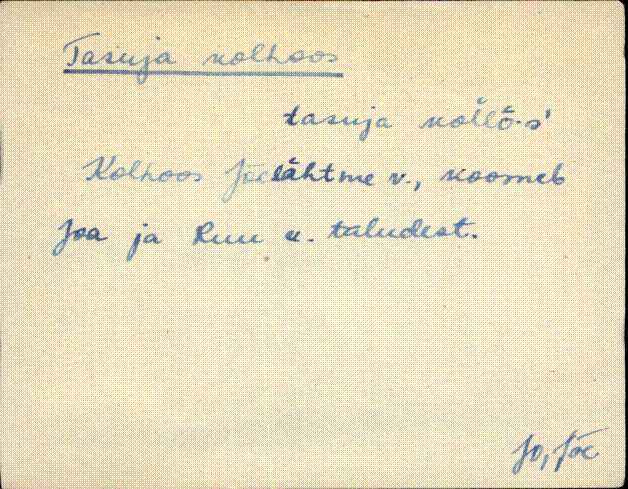 Tasuja kolhoos
tasuja kollõ·s'
Kolhoos Jõelähtme v., koosneb
Joa ja Ruu k. taludest.
Jo, Jõe